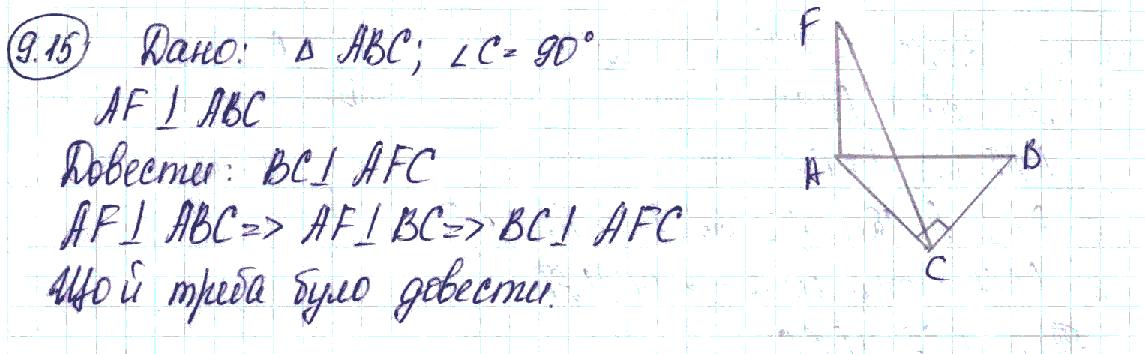 9.15 Дано: Δ ABC; ∠C = 90°
AF ⊥ ABC
Довести: BC ⊥ AFC
AF ⊥ ABC => AF ⊥ BC => BC ⊥ AFC
Що й треба було довести.
F
A
B
C